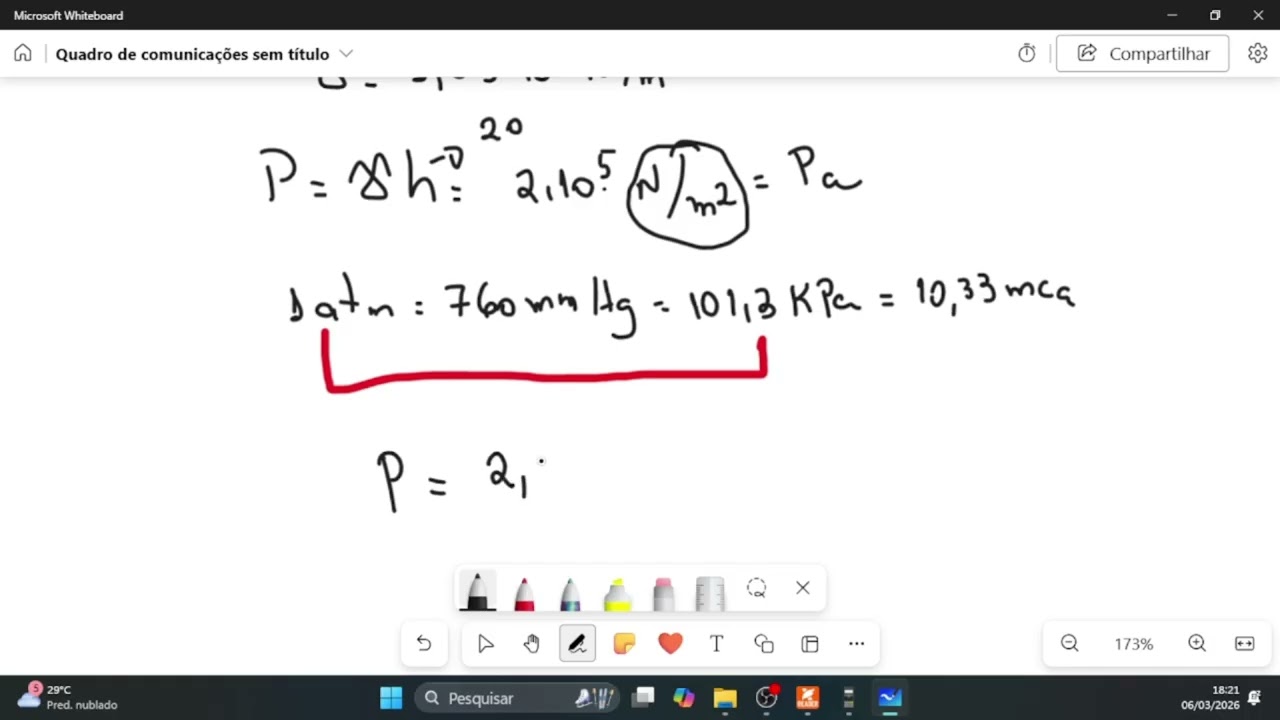 Microsoft Whiteboard
Quadro de comunicações sem título
Compartilhar
P = γh → 20
= 2,10⁵ N/m² = Pa
1 atm = 760 mm Hg = 101,3 KPa = 10,33 mca
P = 2,
173%
5
29°C
Pred. nublado
Pesquisar
18:21
06/03/2026